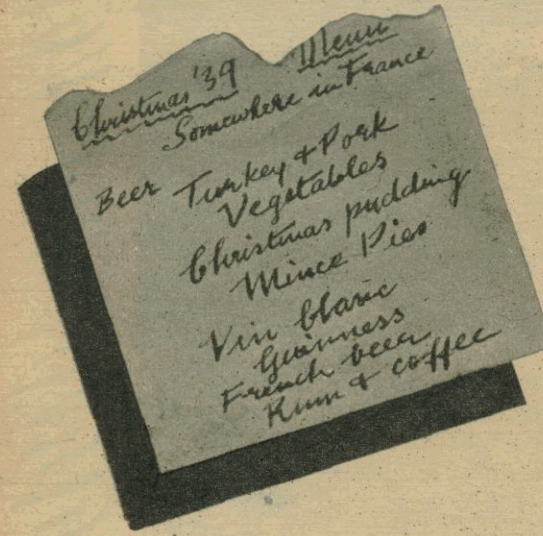 Christmas '39 Menu
Somewhere in France
Beer Turkey + Pork
Vegetables
Christmas pudding
Mince Pies
Vin blanc
Guinness
French beer
Rum + coffee